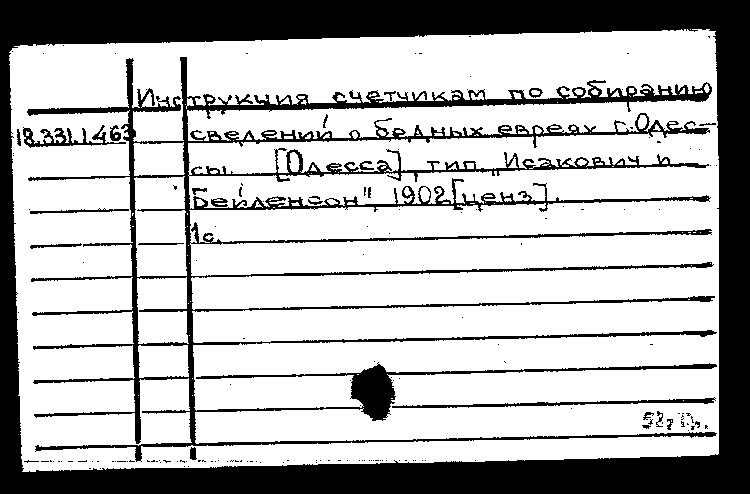 Инструкция счетчикам по собиранию
18.331.1.463 сведений о бедных евреях г.Одес-
сы. [Одесса], тип. „Исакович и
Бейленсон", 1902[ценз].
1с.